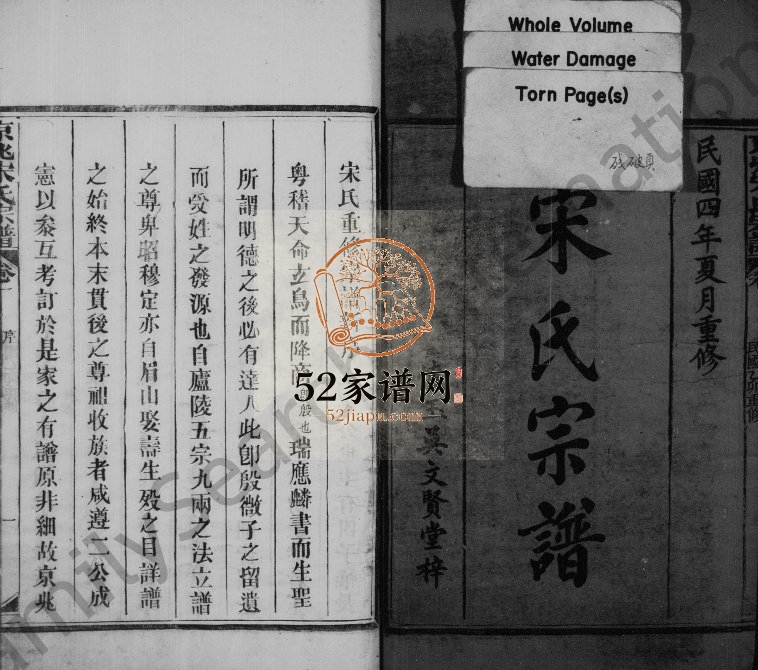 Whole Volume
Water Damage
Torn Page(s)
残破頁
民國四年夏月重修
宋氏宗譜
吳文賢堂梓
民國乙卯重修
宋氏重修
粤稽天命玄鳥而降商 殷也 瑞應麟書而生聖
所謂明德之後必有達人此卽殷微子之留遺
而受姓之發源也自廬陵五宗九兩之法立譜
之尊卑昭穆定亦自眉山娶壽生殁之目詳譜
之始終本末貫後之尊祖收族者咸遵二公成
憲以叅互考訂於是家之有譜原非細故京兆
京兆宋氏宗譜
卷一
序
一
52家谱网
52jiapu.com
FamilySearch